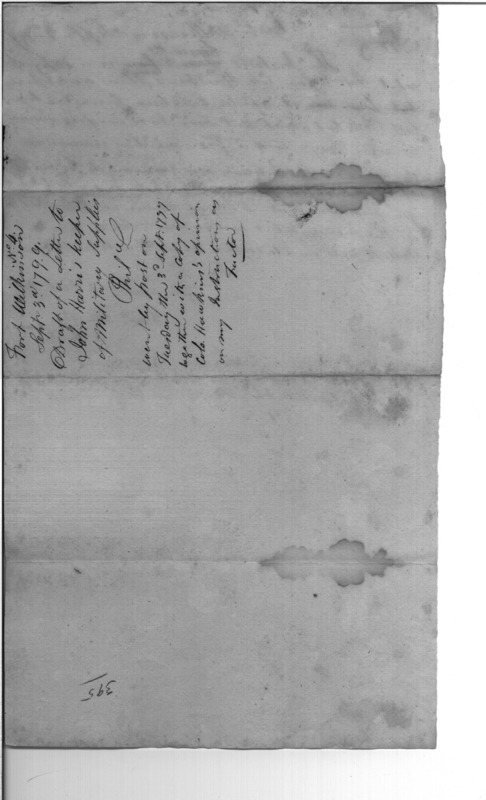 Fort Wilkinson No. 4.
Sept. 3d 1799.
Draft of a Letter to
John Harris keeper
of Military Supplies
Phil
went by post on
Tuesday the 3d Sept. 1799
together with a Copy of
Colo. Hawkins's opinion
on my Instructions as
Factor
395